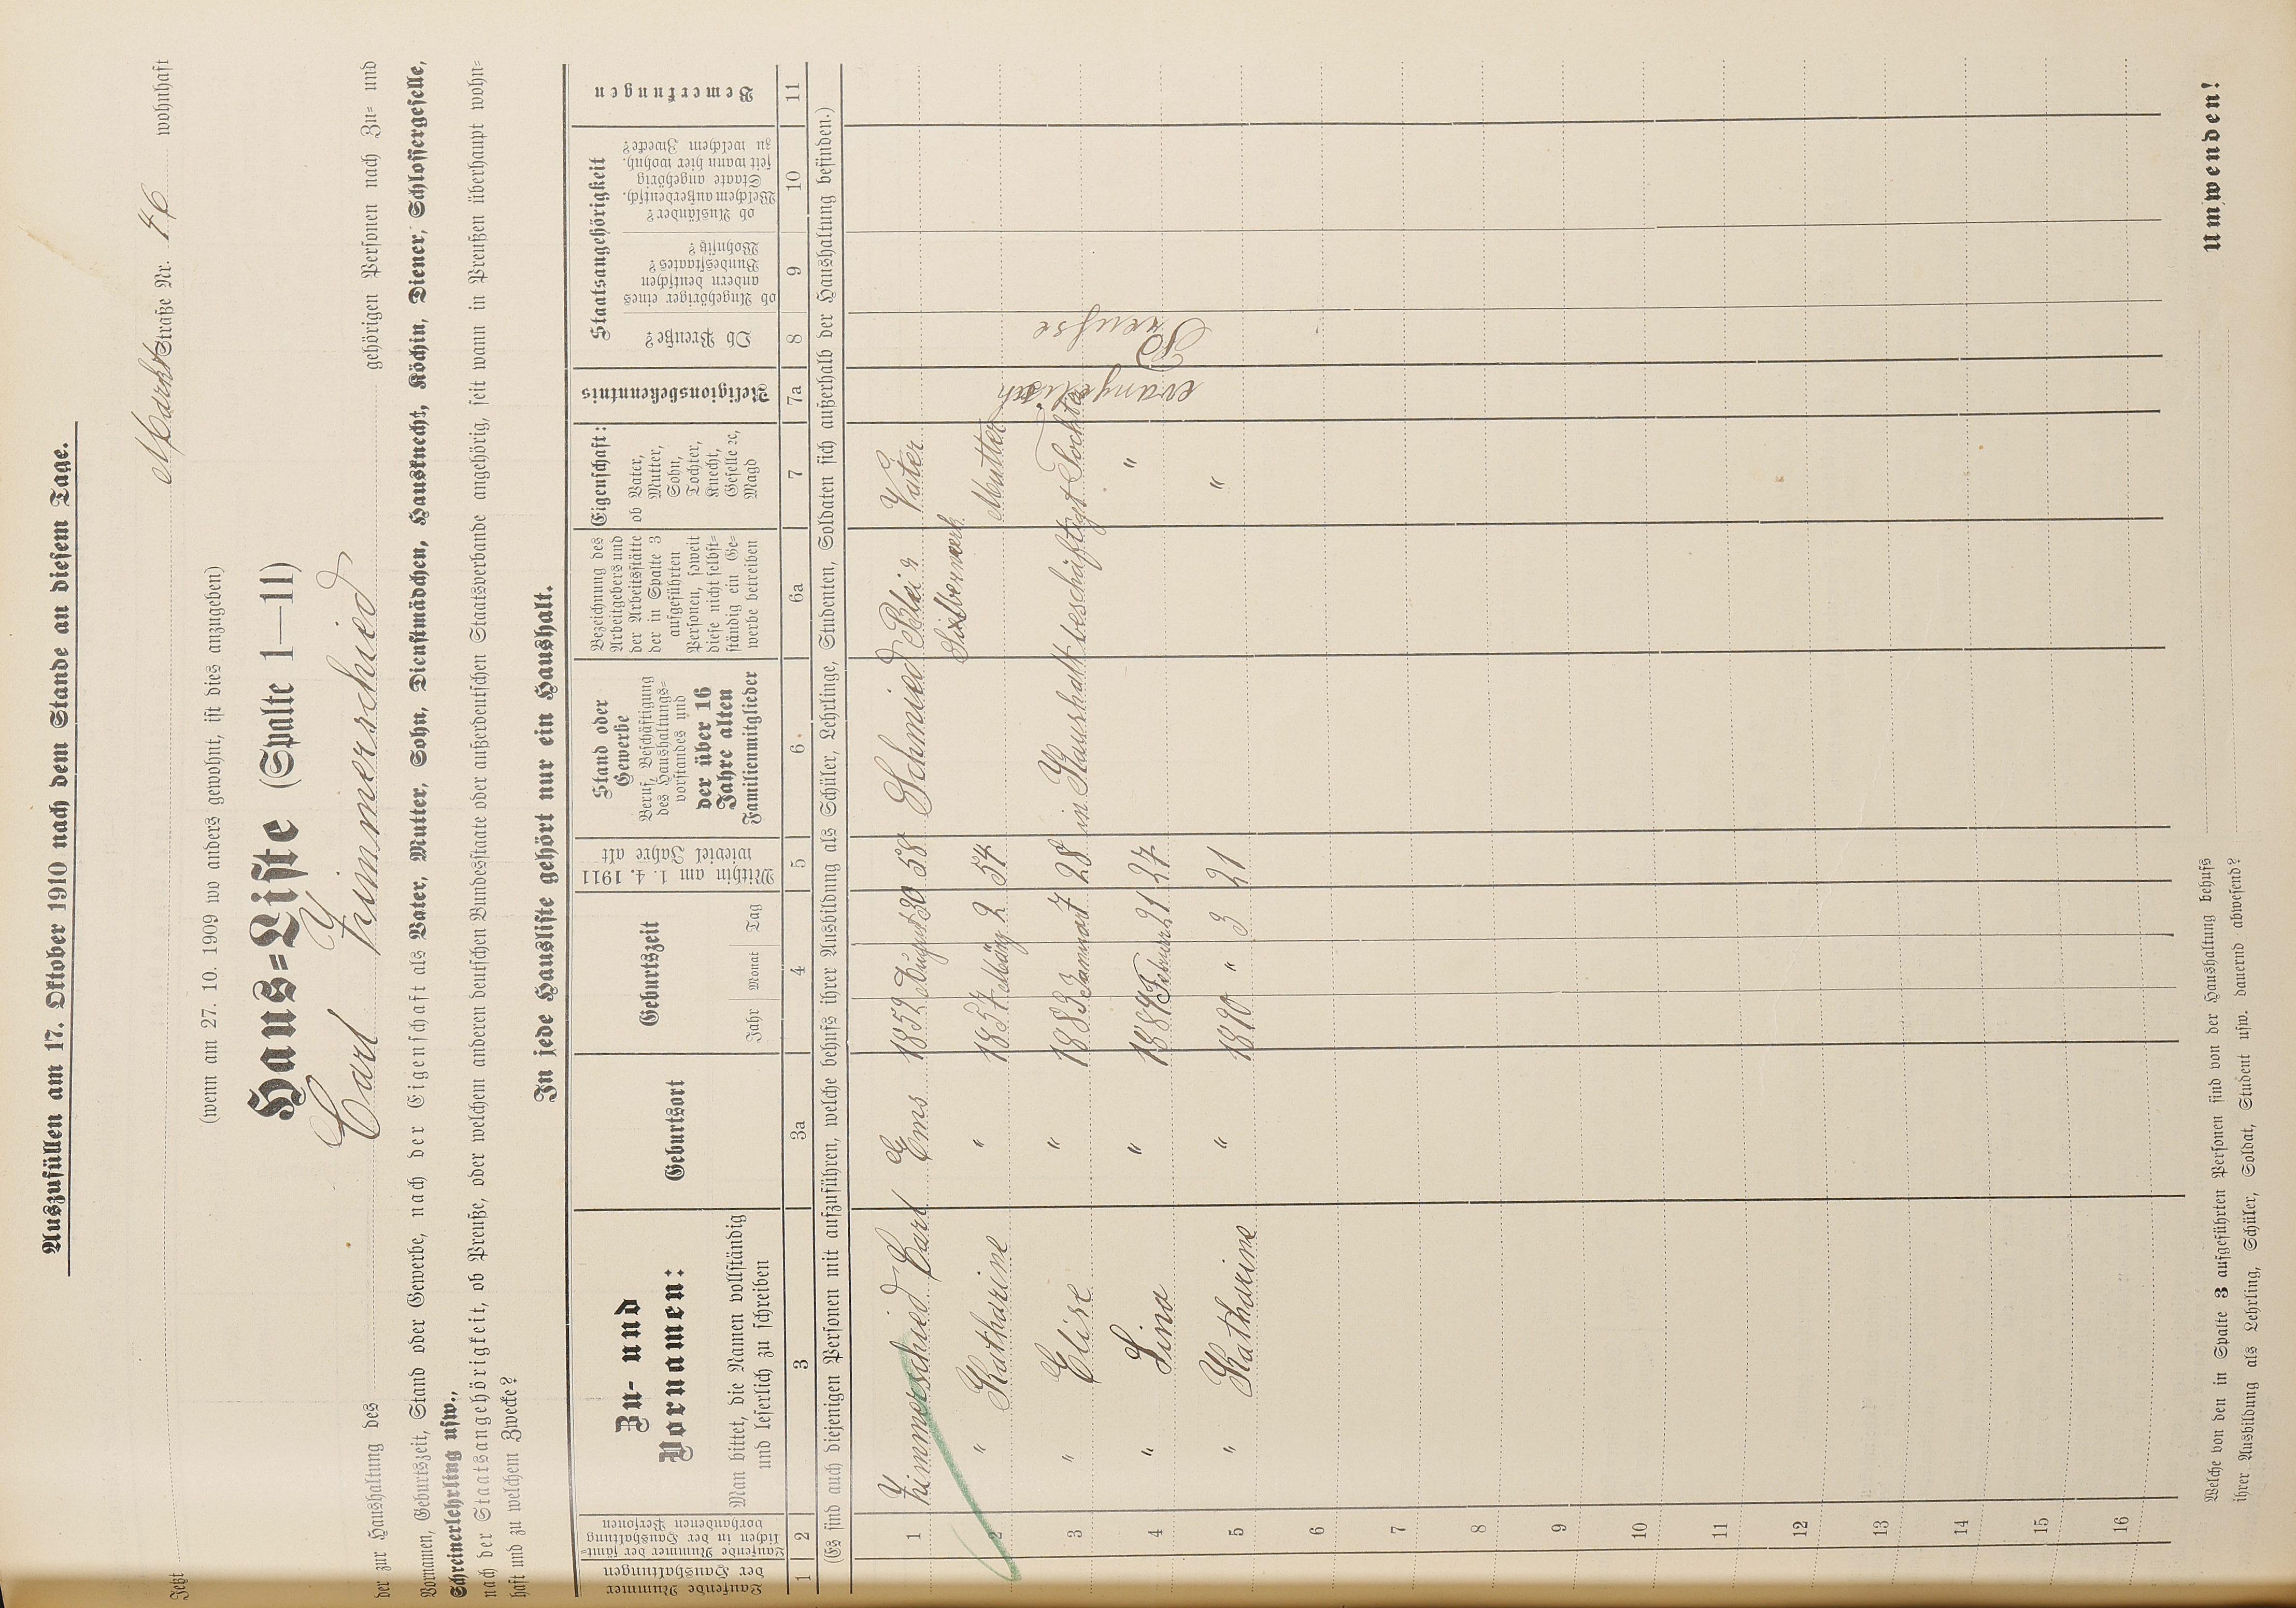 Auszufüllen am 17. Oktober 1910 nach dem Stande an diesem Tage.
Jetzt Markt Straße Nr. 46 wohnhaft
(wenn am 27. 10. 1909 wo anders gewohnt, ist dies anzugeben)
Haus=Liste (Spalte 1—11)
der zur Haushaltung des Carl Zimmerschied gehörigen Personen nach Zu= und
Vornamen, Geburtszeit, Stand oder Gewerbe, nach der Eigenschaft als Vater, Mutter, Sohn, Dienstmädchen, Hausknecht, Köchin, Diener, Schlossergeselle,
Schreinerlehrling usw.,
nach der Staatsangehörigkeit, ob Preuße, oder welchem anderen deutschen Bundesstaate oder außerdeutschen Staatsverbande angehörig, seit wann in Preußen überhaupt wohn=
haft und zu welchem Zwecke?
In jede Hausliste gehört nur ein Haushalt.
Laufende Nummer der Haushaltungen
Laufende Nummer der sämt=lichen in der Haushaltung vorhandenen Personen
Zu- und Vornamen:
Man bittet, die Namen vollständig und leserlich zu schreiben
Geburtsort
Geburtszeit
Jahr Monat Tag
Mithin am 1. 4. 1911 wieviel Jahre alt
Stand oder Gewerbe
Beruf, Beschäftigung des Haushaltungs=vorstandes und der über 16 Jahre alten Familienmitglieder
Bezeichnung des Arbeitgebers und der Arbeitsstätte der in Spalte 3 aufgeführten Personen, soweit diese nicht selbst=ständig ein Ge=werbe betreiben
Eigenschaft:
ob Vater, Mutter, Sohn, Tochter, Knecht, Geselle ꝛc, Magd
Religionsbekenntnis
Staatsangehörigkeit
Ob Preuße?
ob Angehöriger eines andern deutschen Bundesstaates? Wohnsitz?
ob Ausländer? Welchem außerdeutsch. Staate angehörig seit wann hier wohnh. zu welchem Zwecke?
Bemerkungen
1 2 3 3a 4 5 6 6a 7 7a 8 9 10 11
(Es sind auch diejenigen Personen mit aufzuführen, welche behufs ihrer Ausbildung als Schüler, Lehrlinge, Studenten, Soldaten sich außerhalb der Haushaltung befinden.)
1 Zimmerschied Carl Ems 1852 August 30 58 Schmied Blei u Vater
Silberwerk
2 " Katharine " 1857 März 2 54 Mutter
3 " Elise " 1883 Januar 7 28 in Haushalt beschäftigt Tochter
4 " Lina " 1884 Februar 21 27 "
5 " Katharine " 1890 " 3 21 "
evangelisch
Preuße
6
7
8
9
10
11
12
13
14
15
16
Welche von den in Spalte 3 aufgeführten Personen sind von der Haushaltung behufs
ihrer Ausbildung als Lehrling, Schüler, Soldat, Student usw. dauernd abwesend?
Umwenden!